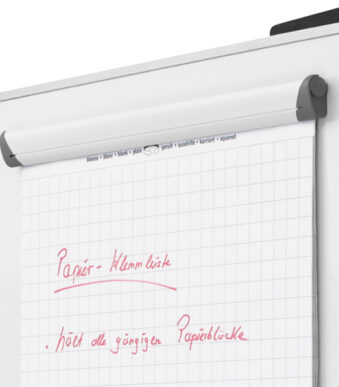 blanco • blanc • blank • plain geruit • quadrillé • karriert • squared
Papier-Klemmleiste
. hält alle gängigen Papierblöcke